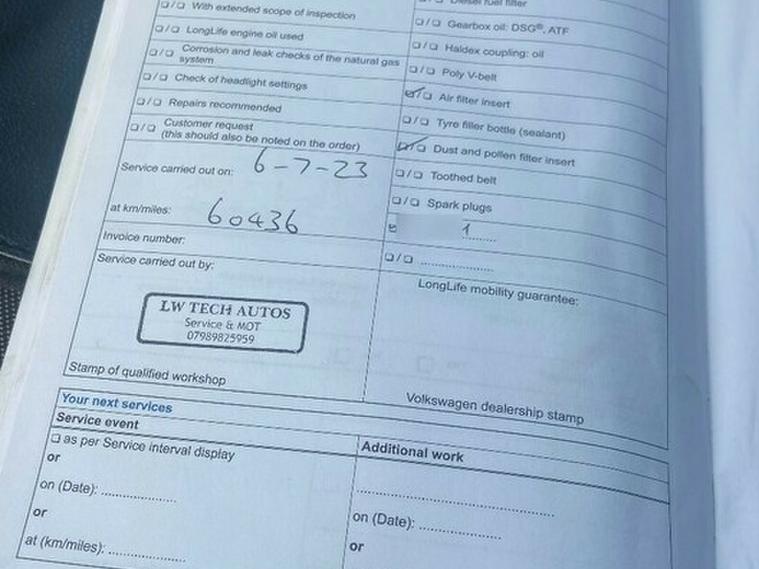 ☐/☐ With extended scope of inspection
☐/☐ LongLife engine oil used
☐/☐ Corrosion and leak checks of the natural gas
system
☐/☐ Check of headlight settings
☐/☐ Repairs recommended
☐/☐ Customer request
(this should also be noted on the order)
Service carried out on: 6-7-23
at km/miles: 60436
Invoice number:
Service carried out by:
LW TECH AUTOS
Service & MOT
07989825959
Stamp of qualified workshop
Diesel fuel filter
☐/☐ Gearbox oil: DSG®, ATF
☐/☐ Haldex coupling: oil
☐/☐ Poly V-belt
☑/☐ Air filter insert
☐/☐ Tyre filler bottle (sealant)
☑/☐ Dust and pollen filter insert
☐/☐ Toothed belt
☐/☐ Spark plugs
☐/☐ ....................
LongLife mobility guarantee:
Volkswagen dealership stamp
Your next services
Service event
☐ as per Service interval display
or
on (Date): ....................
or
at (km/miles): ....................
Additional work
........................................
on (Date): ....................
or